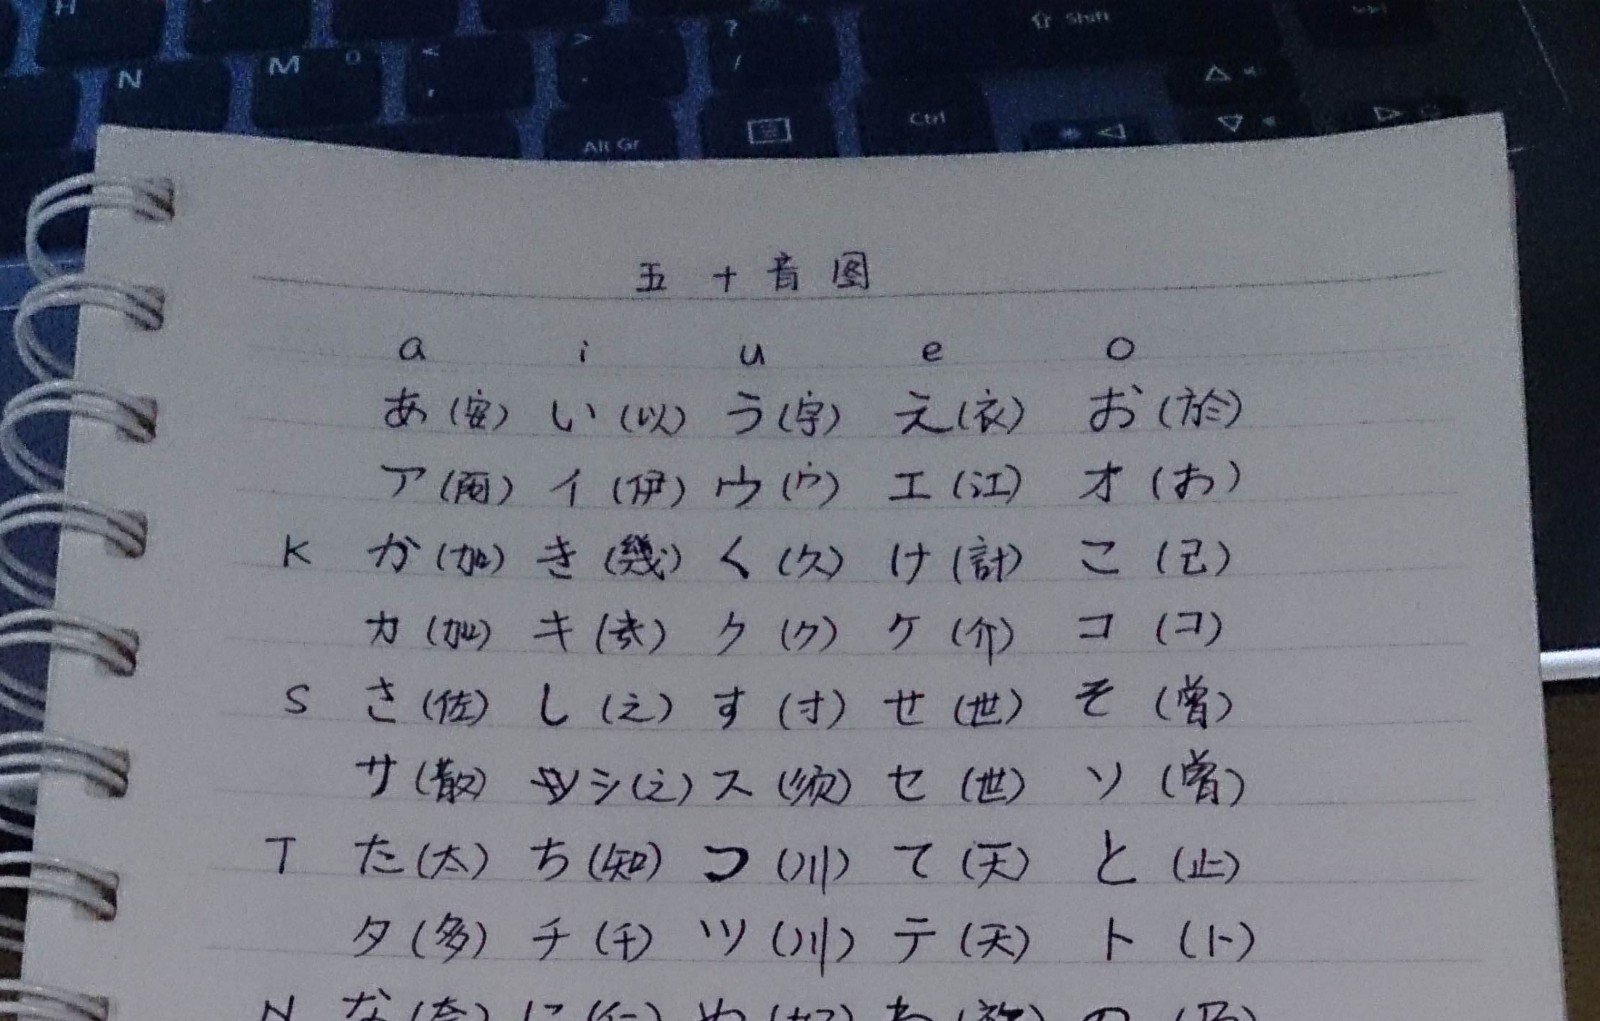 H
N M 0 < , > . ? / ⇧ Shift
Alt Gr Ctrl
五十音图
a i u e o
あ (安) い (以) う (宇) え (衣) お (於)
ア (阿) イ (伊) ウ (ウ) エ (江) オ (お)
K か (加) き (幾) く (久) け (計) こ (己)
カ (加) キ (き) ク (ク) ケ (介) コ (コ)
S さ (佐) し (之) す (寸) せ (世) そ (曽)
サ (散) シ (之) ス (须) セ (世) ソ (曽)
T た (太) ち (知) つ (川) て (天) と (止)
タ (多) チ (千) ツ (川) テ (天) ト (卜)
N な (奈) に (仁) ぬ (奴) ね (祢) の (乃)